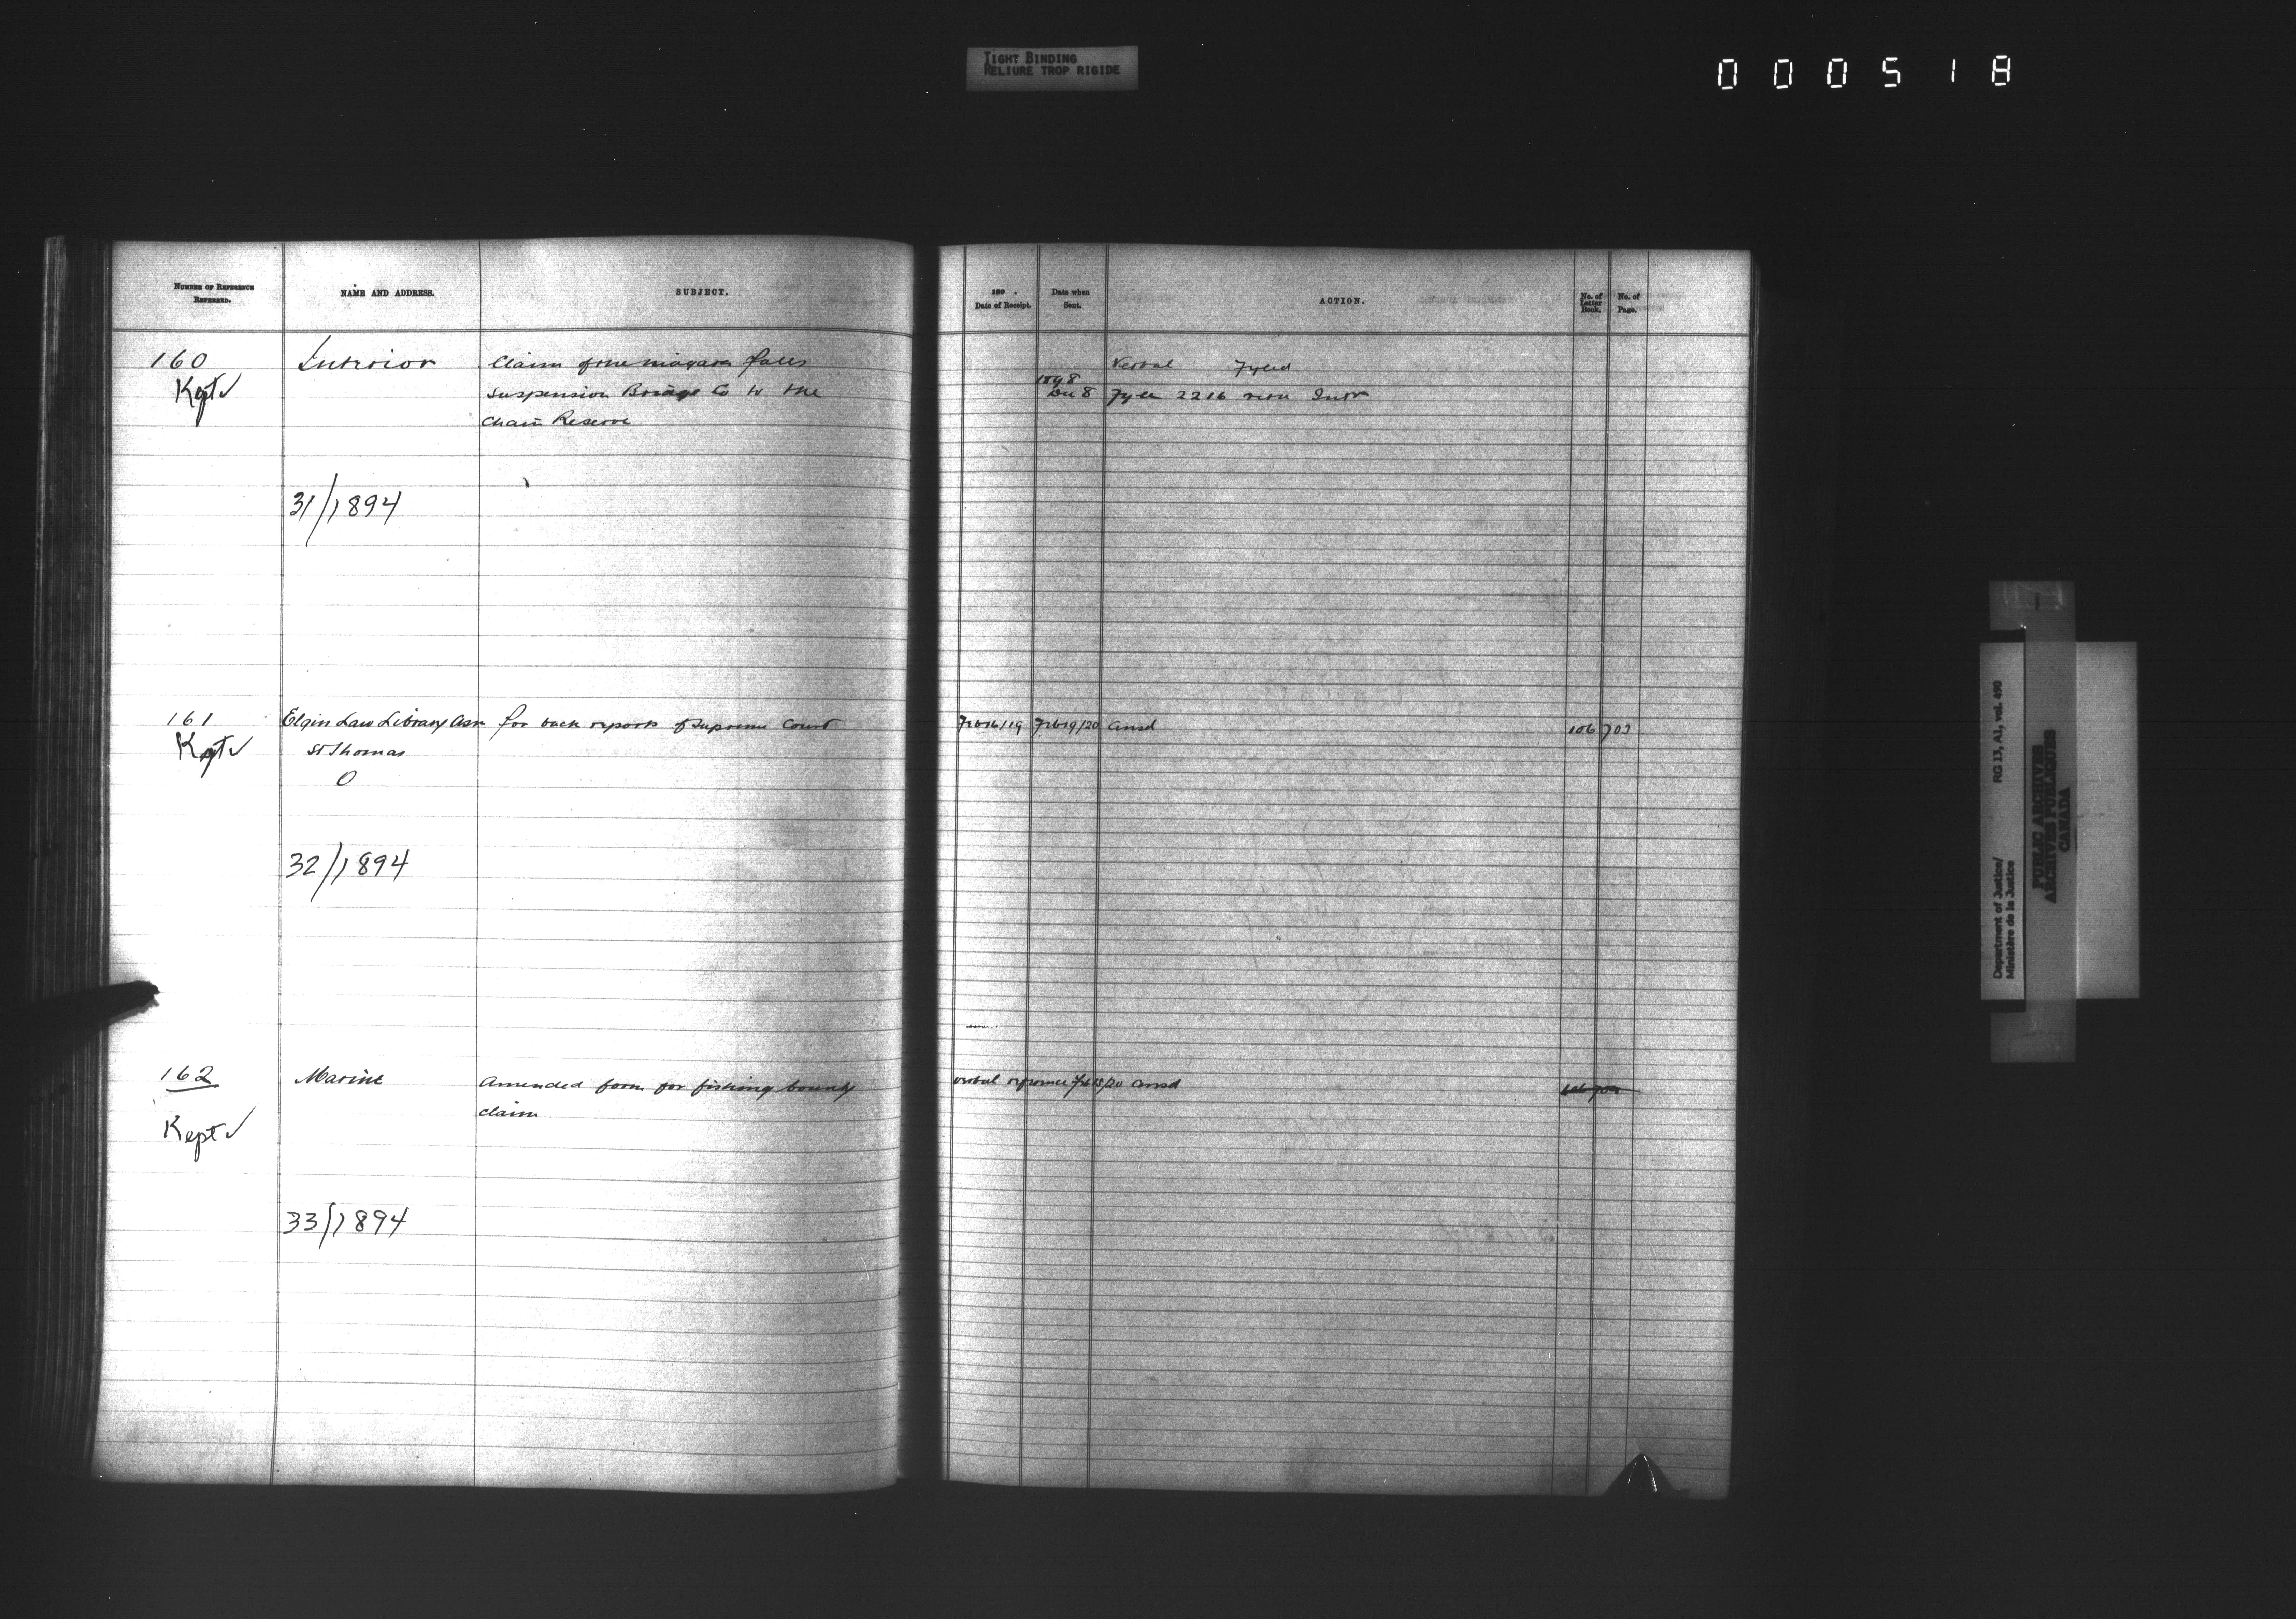 TIGHT BINDING
RELIURE TROP RIGIDE
000518
NUMBER OF REFERENCE
REFERRED.
NAME AND ADDRESS.
SUBJECT.
189 .
Date of Receipt.
Date when
Sent.
ACTION.
No. of
Letter
Book.
No. of
Page.
160
Kept ✓
Interior
Claim of the Niagara Falls
Suspension Bridge Co to the
Chain Reserve
Verbal Fyled
1898
Dec 8 Fyle 2216 retd Intr
31/1894
161
Kept ✓
Elgin Law Library Assn
St Thomas
O
for back reports of Supreme Court
Feb 16/19 Feb 19/20 ansd
106 703
32/1894
162
Kept ✓
Marine
Amended form for fishing bounty
claim
verbal reference Feb 15/20 ansd
33/1894
Department of Justice/
Ministère de la Justice
RG 13, A1, vol. 490
PUBLIC ARCHIVES
ARCHIVES PUBLIQUES
CANADA